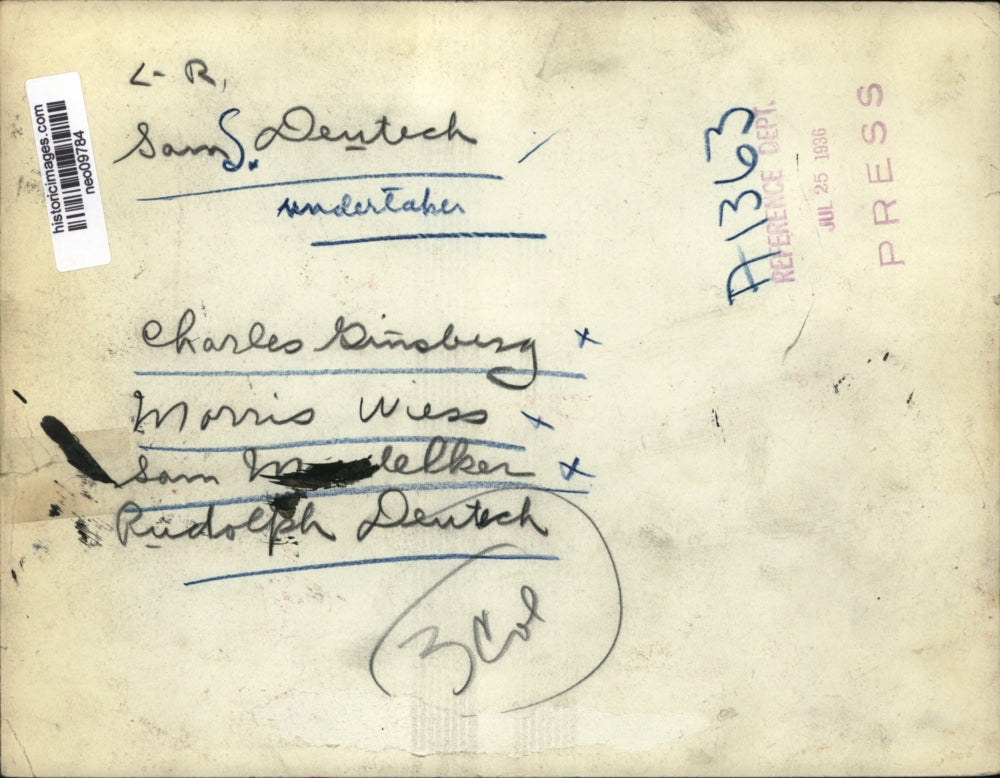 L-R,
Sam S. Deutsch
undertaker
Charles Ginsberg x
Morris Wiess x
Sam x
Rudolph Deutsch
3 Col
A1363
REFERENCE DEPT.
JUL 25 1936
PRESS
historicimages.com
neo09784